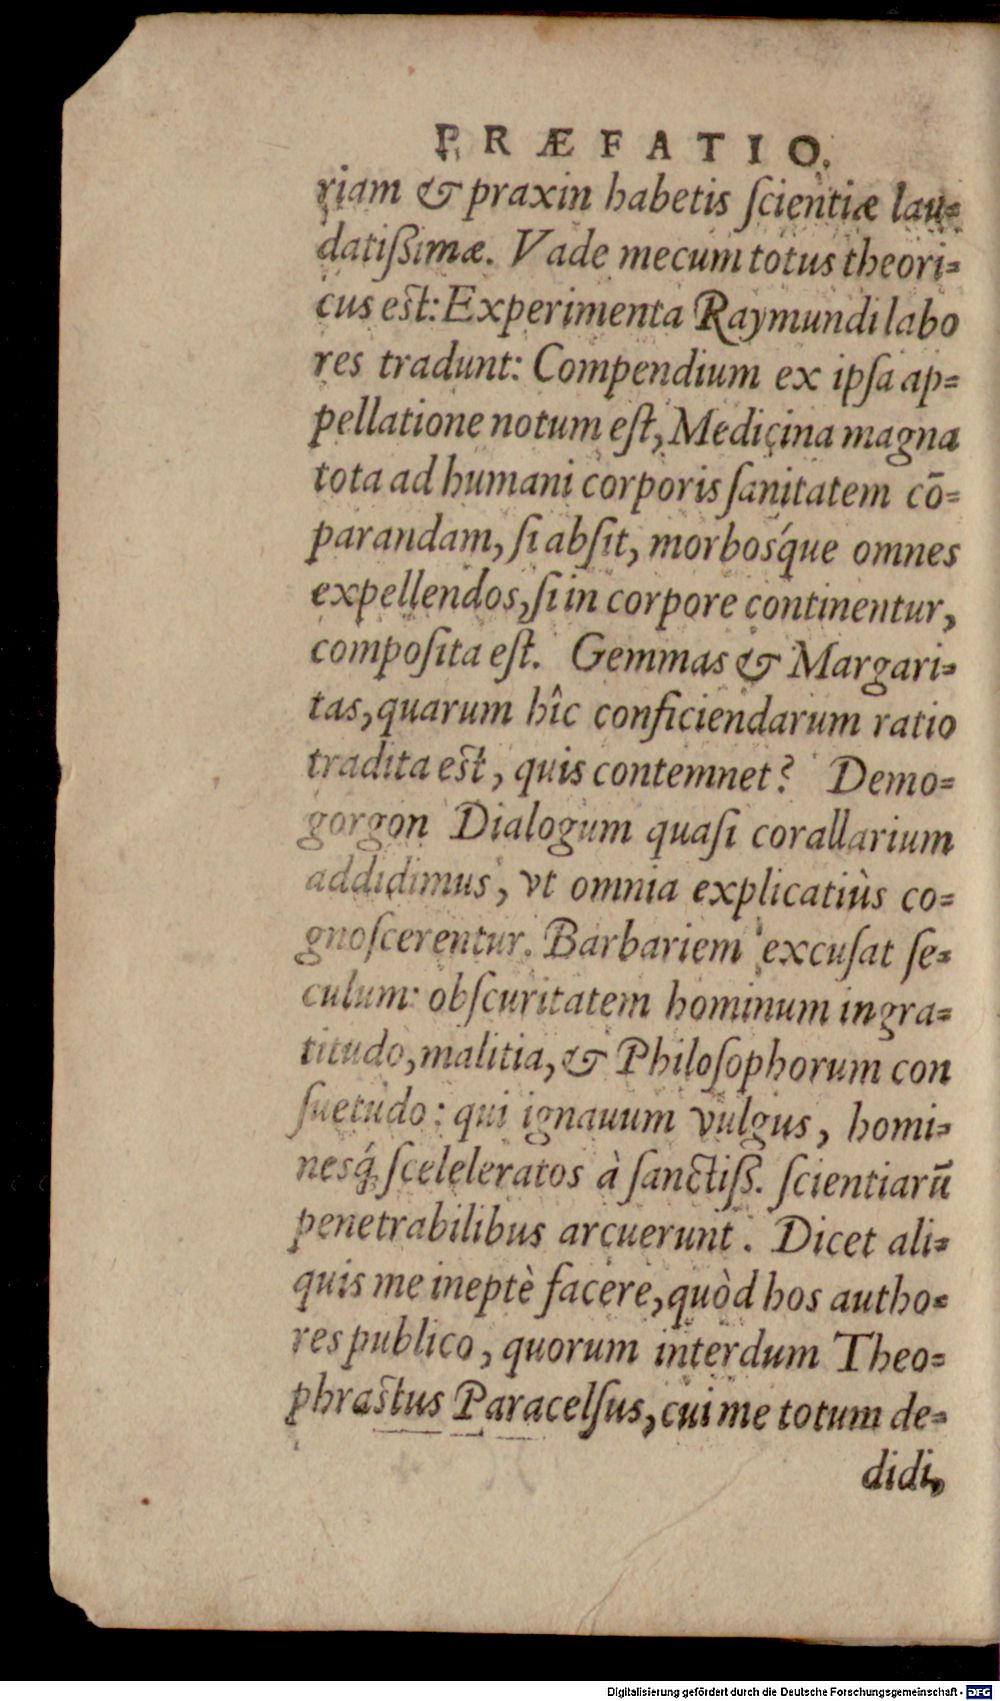 PRÆFATIO.
riam & praxin habetis ſcientiæ lau=
datiſsimæ. Vade mecum totus theori=
cus eſt: Experimenta Raymundi labo
res tradunt: Compendium ex ipſa ap=
pellatione notum eſt, Medicina magna
tota ad humani corporis ſanitatem cō=
parandam, ſi abſit, morbosq́ue omnes
expellendos, ſi in corpore continentur,
compoſita eſt. Gemmas & Margari=
tas, quarum hîc conficiendarum ratio
tradita eſt, quis contemnet? Demo=
gorgon Dialogum quaſi corallarium
addidimus, vt omnia explicatiùs co=
gnoſcerentur. Barbariem excuſat ſe=
culum: obſcuritatem hominum ingra=
titudo, malitia, & Philoſophorum con
ſuetudo: qui ignauum vulgus, homi=
nesq́; ſceleleratos à ſanctiſs. ſcientiarū
penetrabilibus arcuerunt. Dicet ali=
quis me ineptè facere, quòd hos autho=
res publico, quorum interdum Theo=
phraſtus Paracelſus, cui me totum de=
didi,
Digitalisierung gefördert durch die Deutsche Forschungsgemeinschaft - DFG